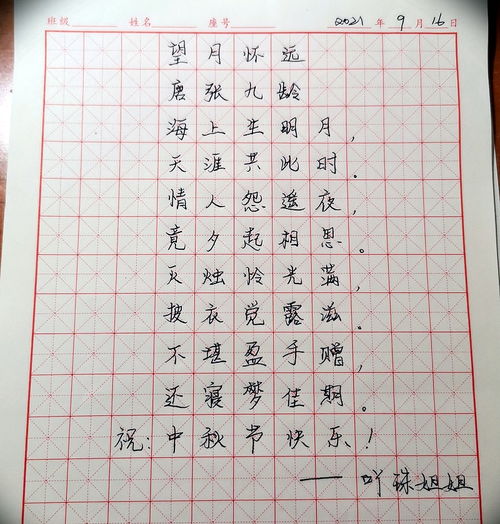 班级 姓名 座号 2021年9月16日
望月怀远
唐张九龄
海上生明月,
天涯共此时。
情人怨遥夜,
竟夕起相思。
灭烛怜光满,
披衣觉露滋。
不堪盈手赠,
还寝梦佳期。
祝:中秋节快乐!
——吖珠姐姐